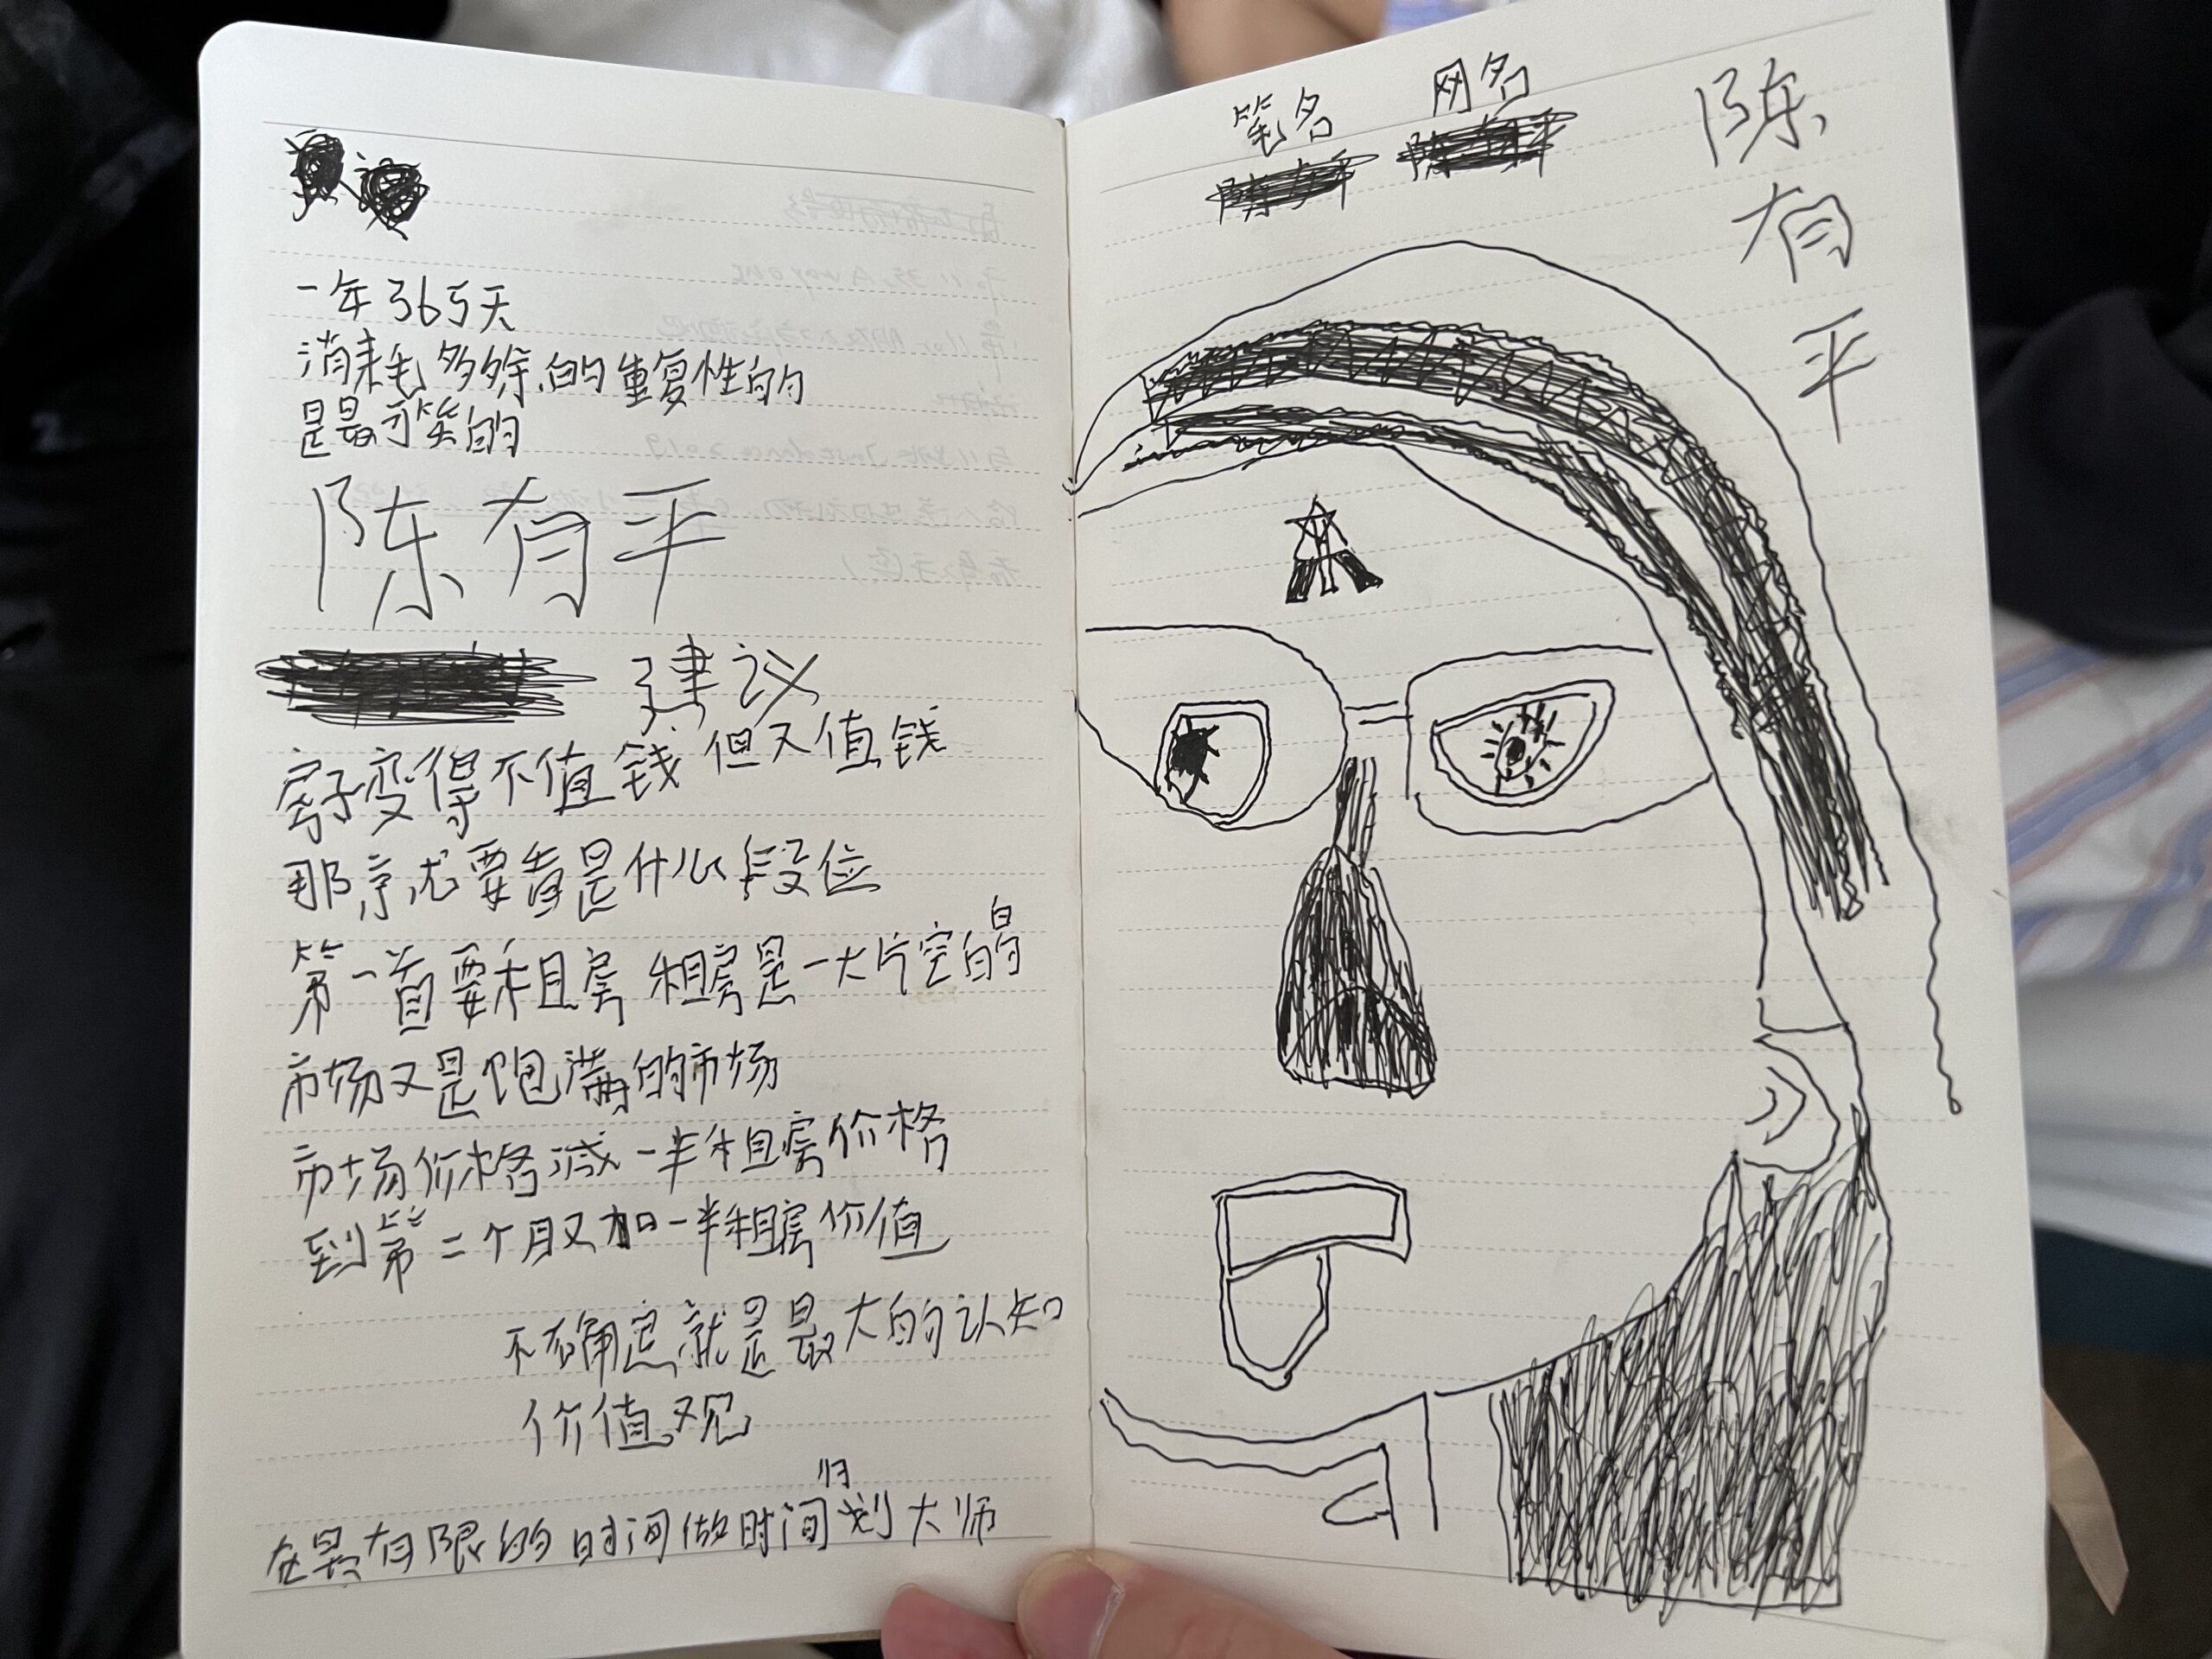 一年365天
消耗多余的重复性的
是最可笑的
陈有平
建议
房子变得不值钱 但又值钱
那就要看是什么段位
第一首要租房 租房是一大片空白的
市场又是饱满的市场
市场价格减一半租房价格
到第二个月又加一半租房价值
不确定就是最大的认知
价值观
在最有限的时间做时间归划大师
笔名 网名
陈
有
平